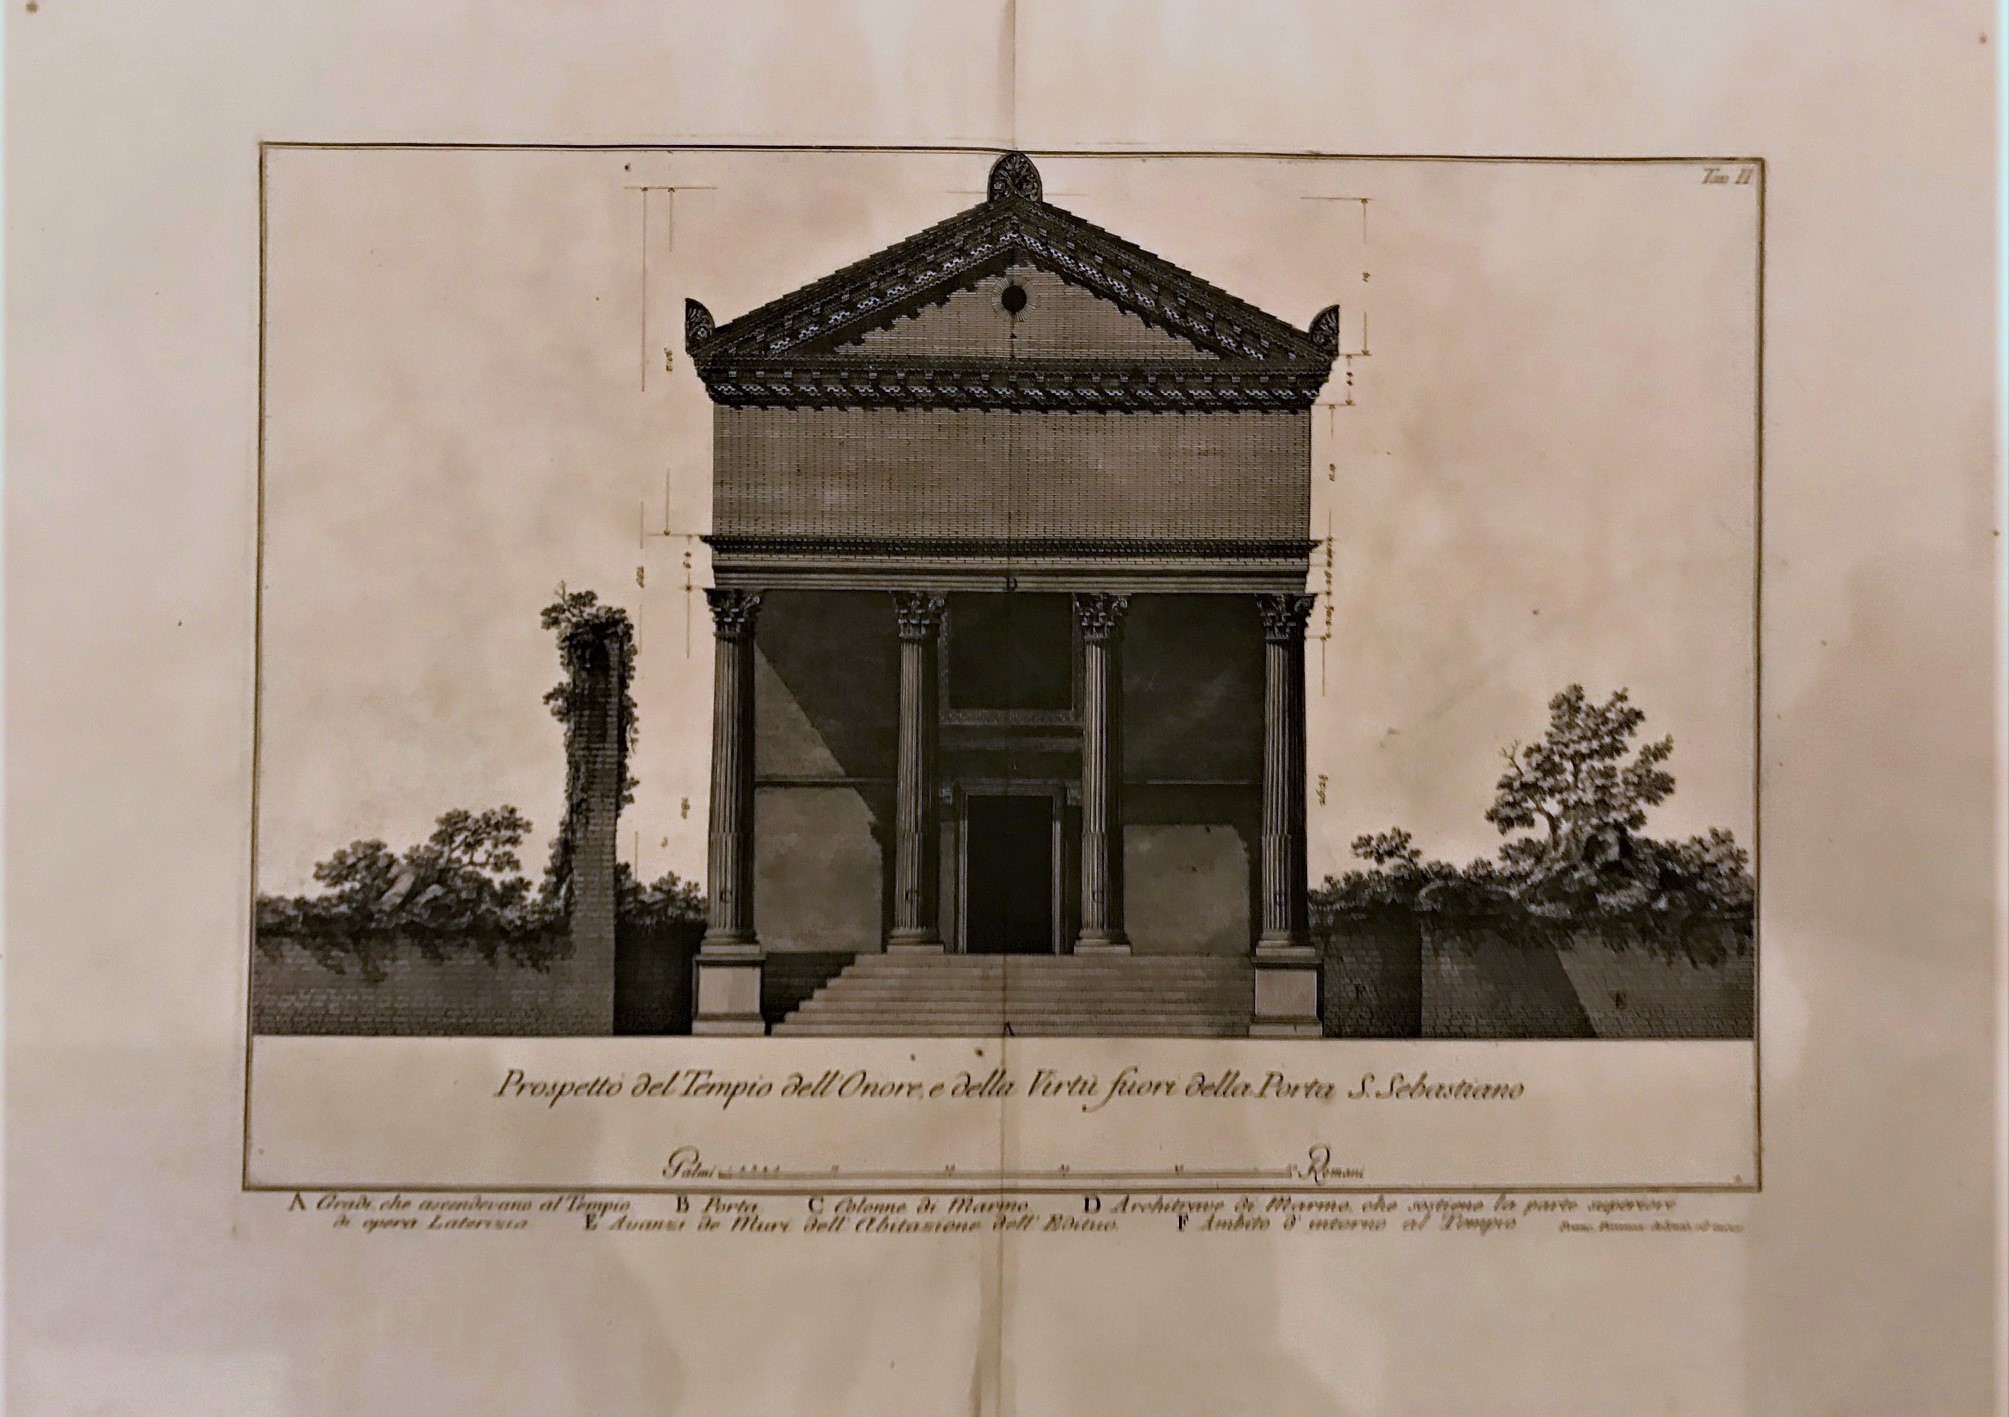 Tav II
D
C C C C
F E
A
Prospetto del Tempio dell'Onore, e della Virtù fuori della Porta S. Sebastiano
Palmi Romani
A Gradi, che ascendevano al Tempio B Porta C Colonne di Marmo D Architrave di Marmo, che sostiene la parte superiore
di opera Laterizia E Avanzi de Muri dell'Abitazione dell'Edituo. F Ambito d'intorno al Tempio